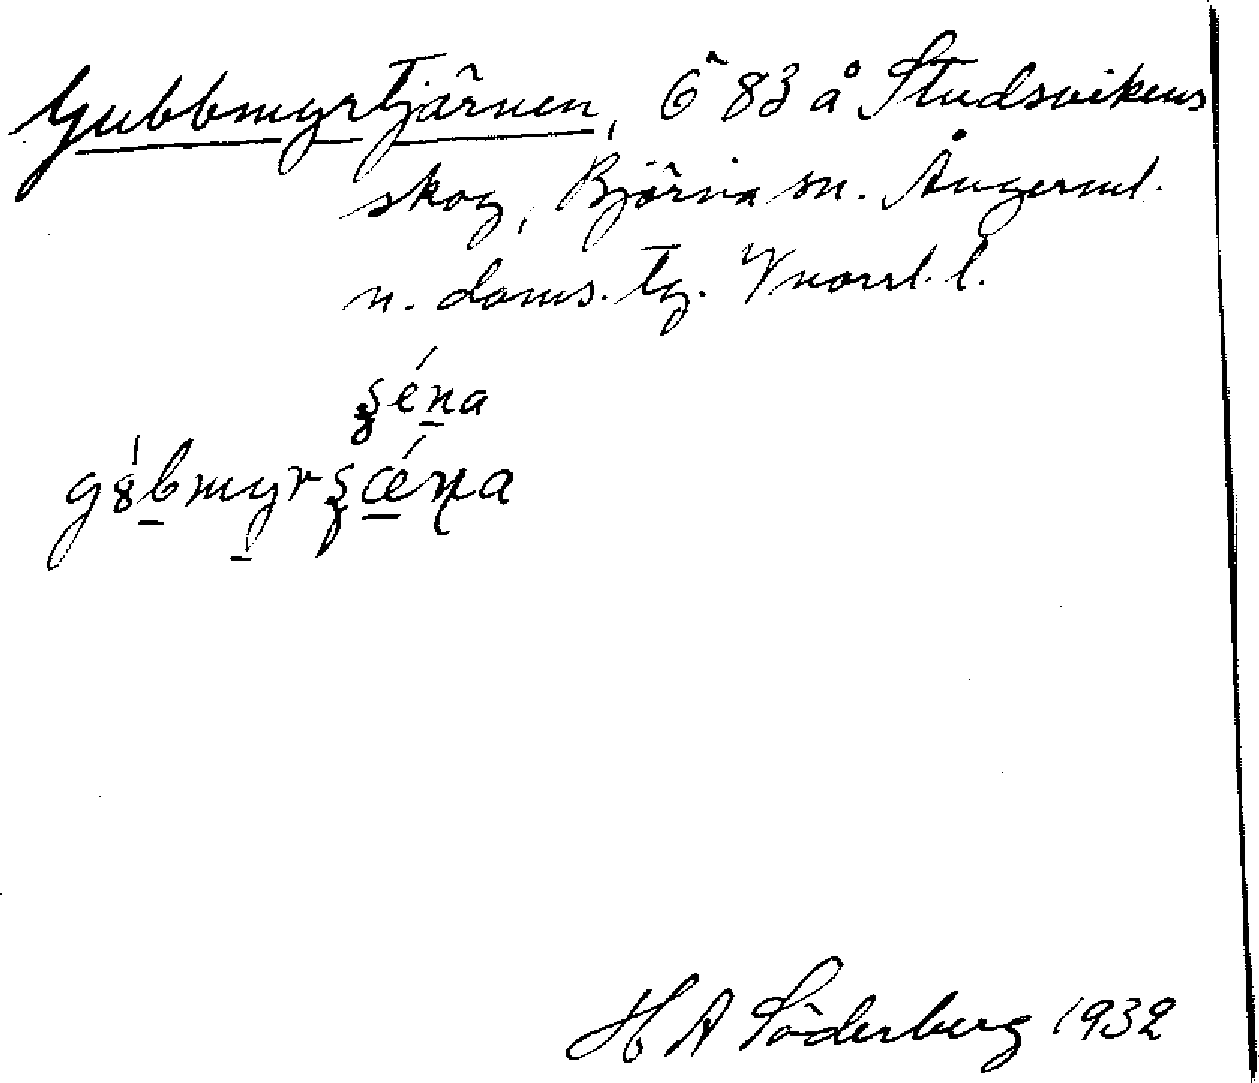 Gubbmyrtjärnen, 6^ 83 å Studsvikens
skog, Björna sn. Ångerml.
n. doms. tg. Vnorrl. l.
H A Söderberg 1932